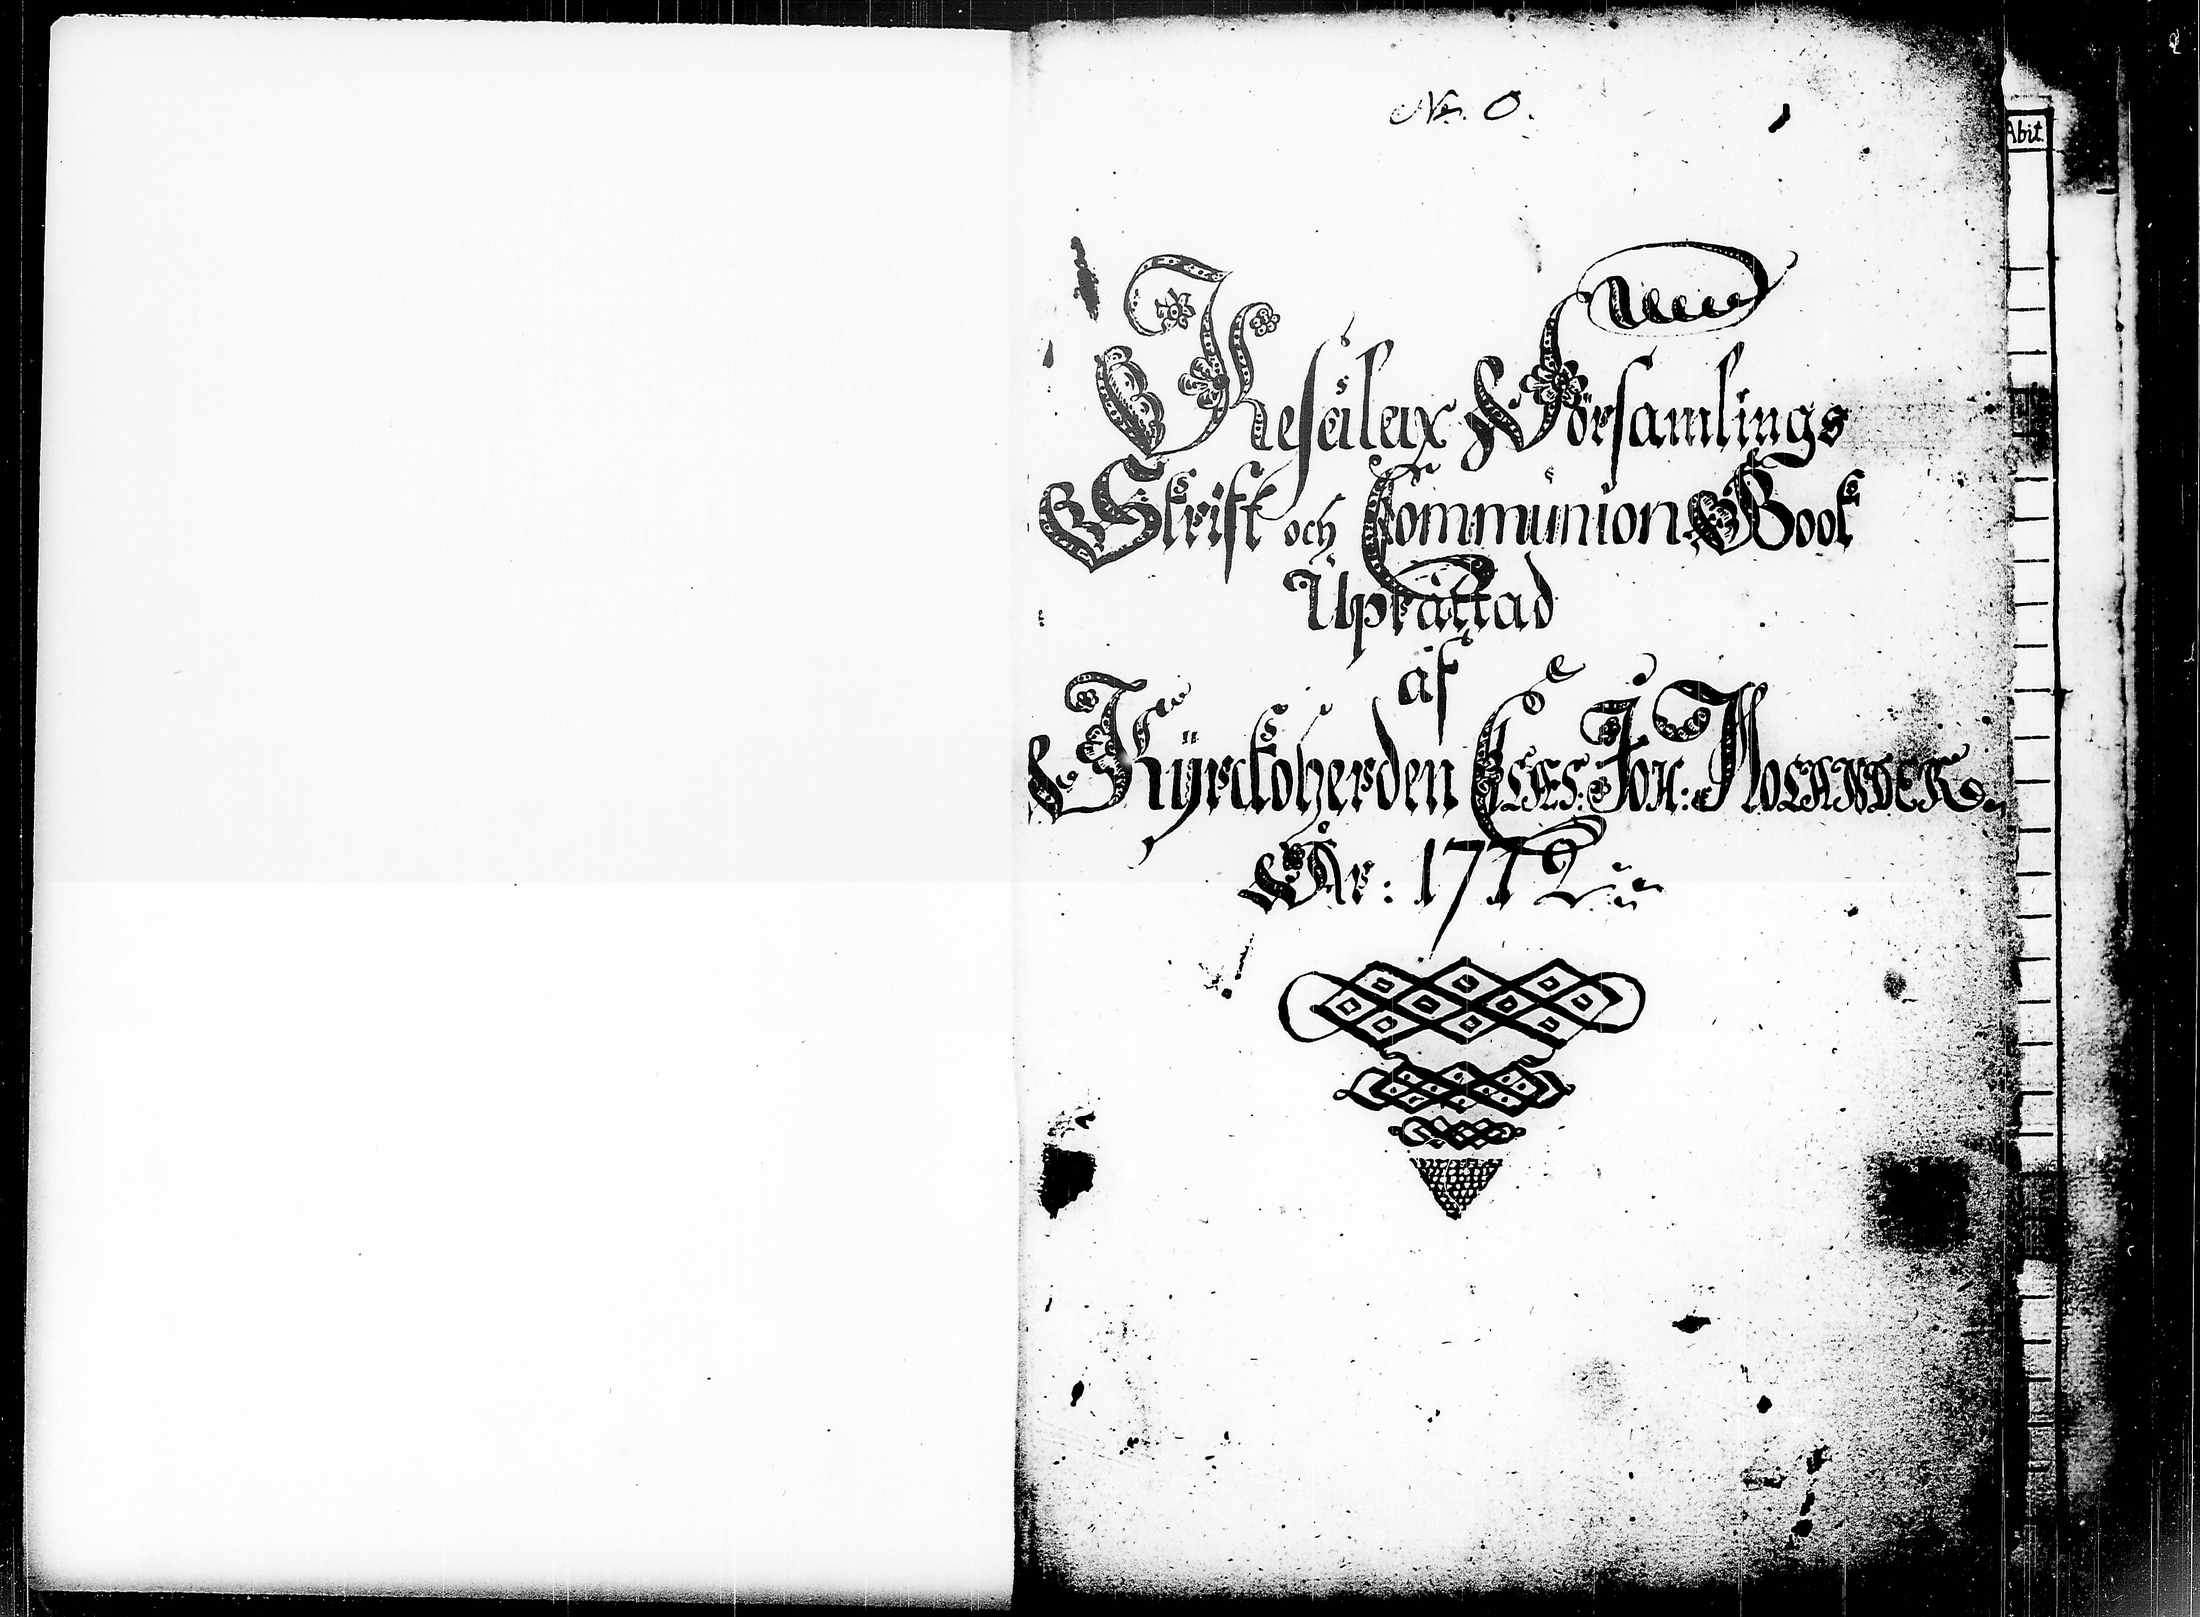 No. 0.
Abit
Kesälax Församlings
Skrift och Communion Book
Uprättad
af
Kÿrckoherden Joh: Molander.
År: 1772